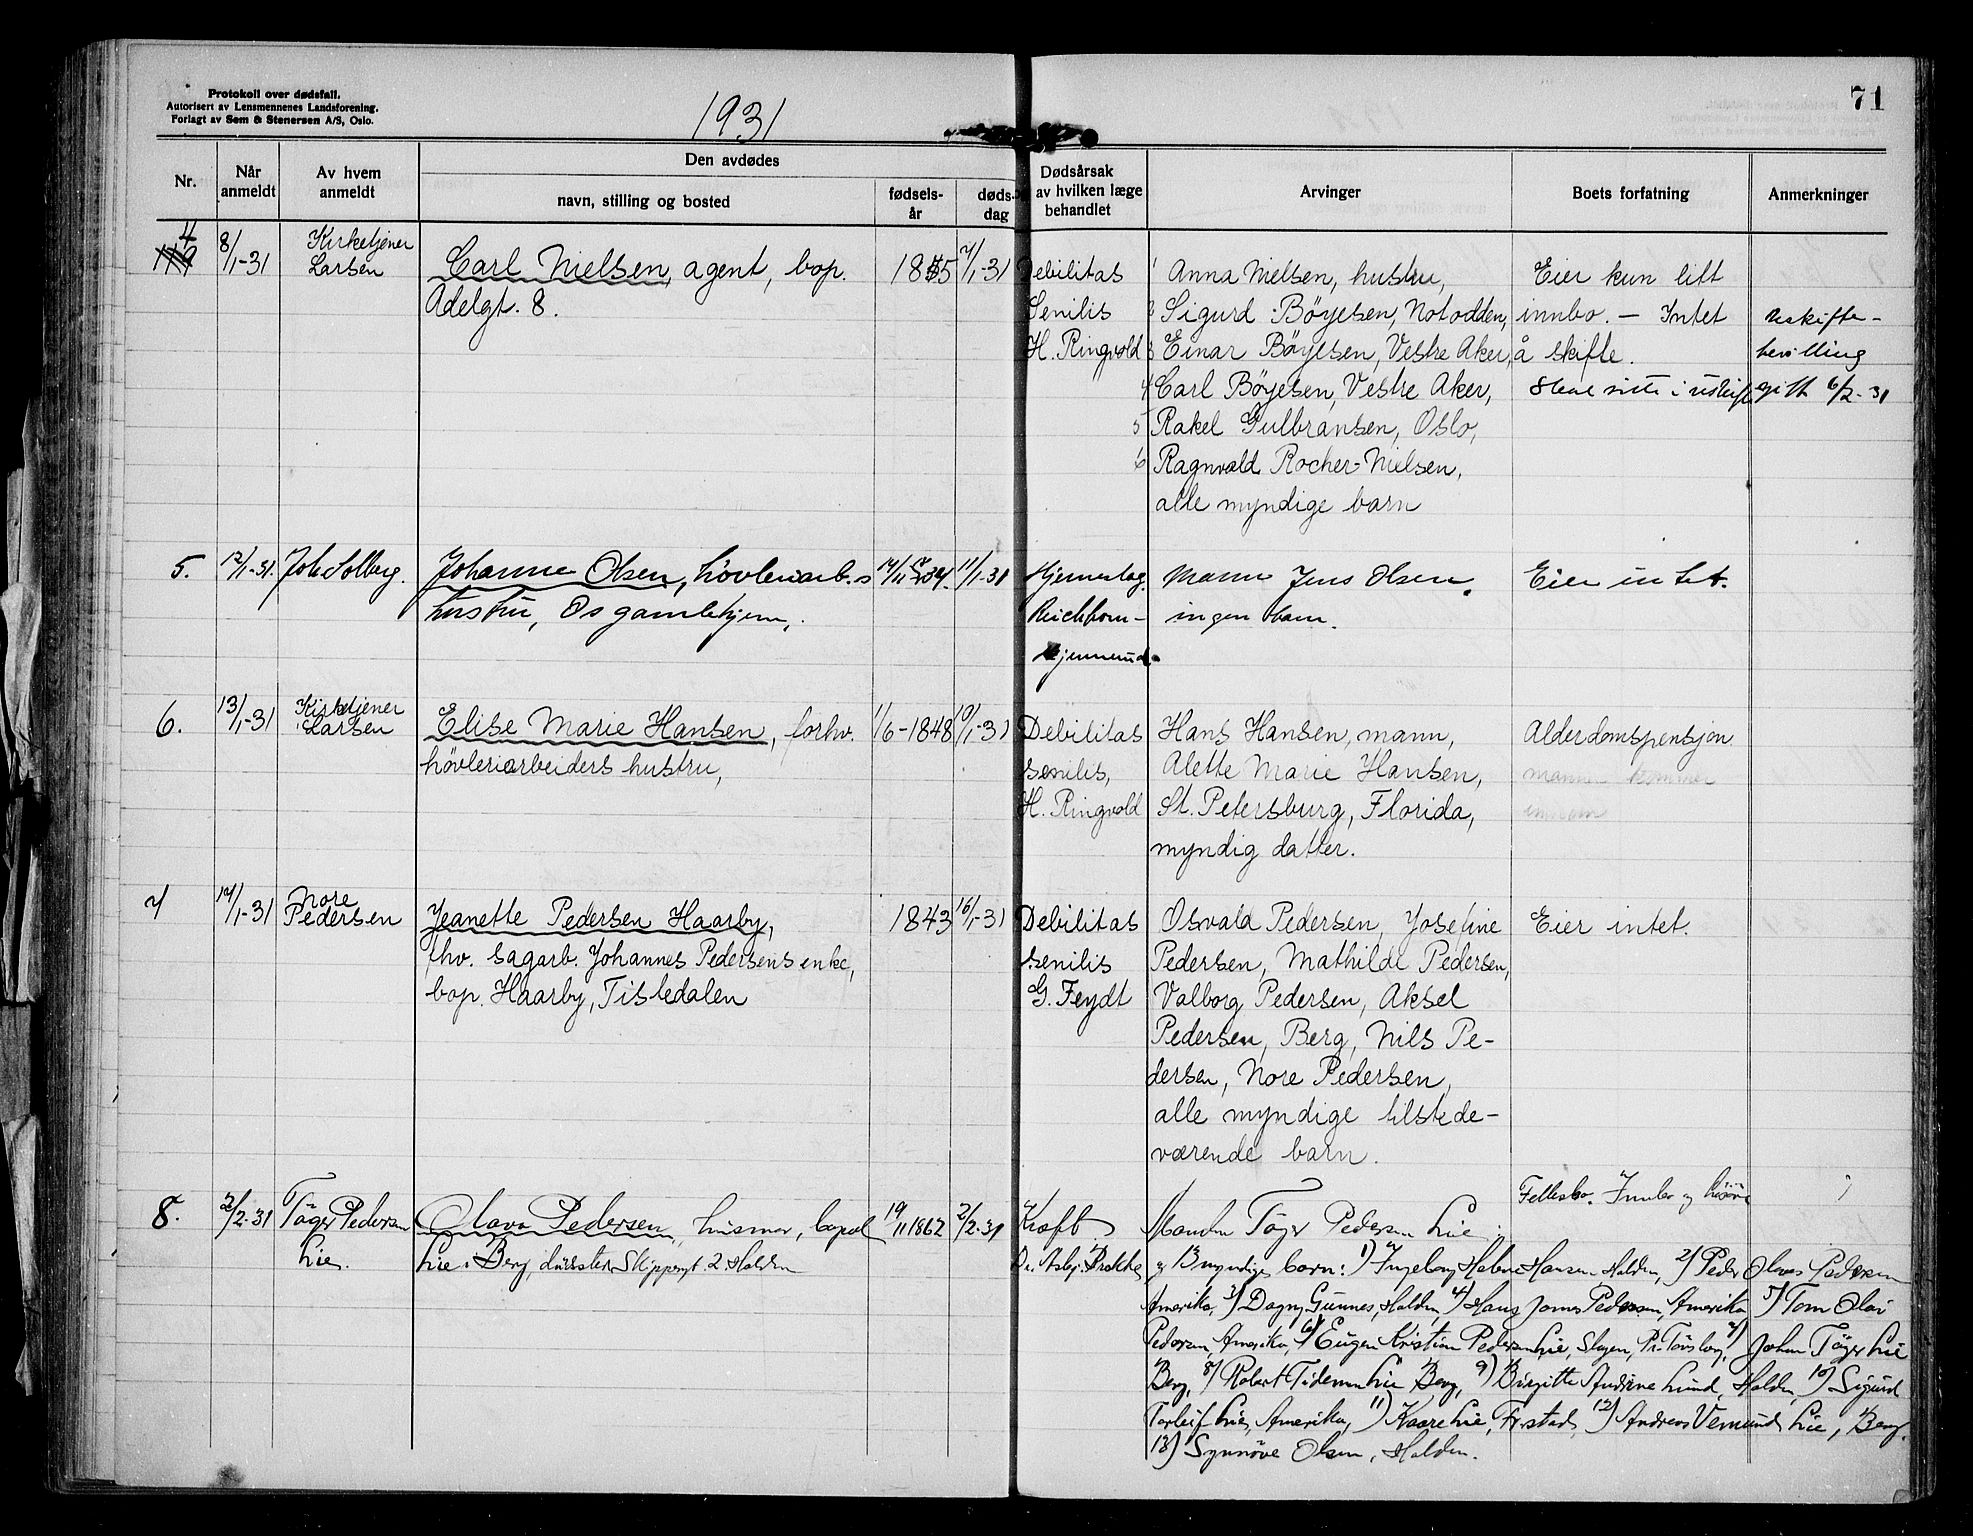 Protokoll over dødsfall.
Autorisert av Lensmennenes Landsforening.
Forlagt av Sem & Stenersen A/S, Oslo.
1931
71
Nr.
Når anmeldt
Av hvem anmeldt
Den avdødes
navn, stilling og bosted
fødselsår
dødsdag
Dødsårsak
av hvilken læge
behandlet
Arvinger
Boets forfatning
Anmerkninger
4
8/1-31
Kirketjener
Larsen
Carl Nielsen, agent, bop.
Adelgt. 8.
1855
7/1-31
Debilitas
Senilis
H. Ringvold
1 Anna Nielsen, hustru,
2 Sigurd Böyesen, Notodden,
3 Einar Böyesen, Vestre Aker,
4 Carl Böyesen, Vestre Aker,
5 Rakel Gulbransen, Oslo,
6 Ragnvald Rocher-Nielsen,
alle myndige barn
Eier kun litt
innbo. – Intet
å skifte.
Skal sitte i
uskifte-
bevilling
gitt 6/2-31
5.
12/1-31.
Joh. Solberg.
Johanne Olsen, hövleriarb.s
hustru, Os gamlehjem,
14/11
11/1-31
Hjerneslag.
Reichborn-
Kjennerud.
Mann Jens Olsen.
ingen barn.
Eier intet.
6.
13/1-31
Kirketjener
Larsen
Elise Marie Hansen, forhv.
hövleriarbeiders hustru,
1/6-1848
10/1-31
Debilitas
senilis,
H. Ringvold
Hans Hansen, mann,
Alette Marie Hansen,
St. Petersburg, Florida,
myndig datter.
Alderdomspensjon
mannen kommer
7
17/1-31
Nore
Pedersen
Jeanette Pedersen Haarby,
fhv. sagarb. Johannes Pedersens enke,
bop. Haarby, Tistedalen
1843
16/1-31
Debilitas
senilis
G. Feydt
Osvald Pedersen, Josefine
Pedersen, Mathilde Pedersen,
Valborg Pedersen, Aksel
Pedersen, Berg, Nils Pe-
dersen, Nore Pedersen,
alle myndige tilstede-
værende barn.
Eier intet.
8.
2/2-31
Töger Pedersen
Lie.
Olava Pedersen, husmor, bopæl
Lie i Berg, Skippergt. 2. Halden
19/11 1862
2/2-31
Kræft
Dr. Asbj. Brække
Felleibo. Innbo og
Manden Töger Pedersen Lie
og 13 myndige barn: 1) Ingeborg Halene Hansen Halden, 2) Peder Olaves Pedersen
Amerika, 3) Dagny Gunnes, Halden, 4) Hans Jonas Pedersen, Amerika 5) Tom Olai
Pedersen, Amerika, 6) Eugen Kristian Pedersen Lie, Slagen, Pr. Tönsberg, 7) Johan Töger Lie
Berg, 8) Robert Tideman Lie Berg, 9) Birgitte Andrine Lund, Halden, 10) Sigurd
Torleif Lie, Amerika, 11) Kaare Lie, Fr.stad, 12) Andreas Vemund Lie, Berg.
13) Synnöve Olsen, Halden.